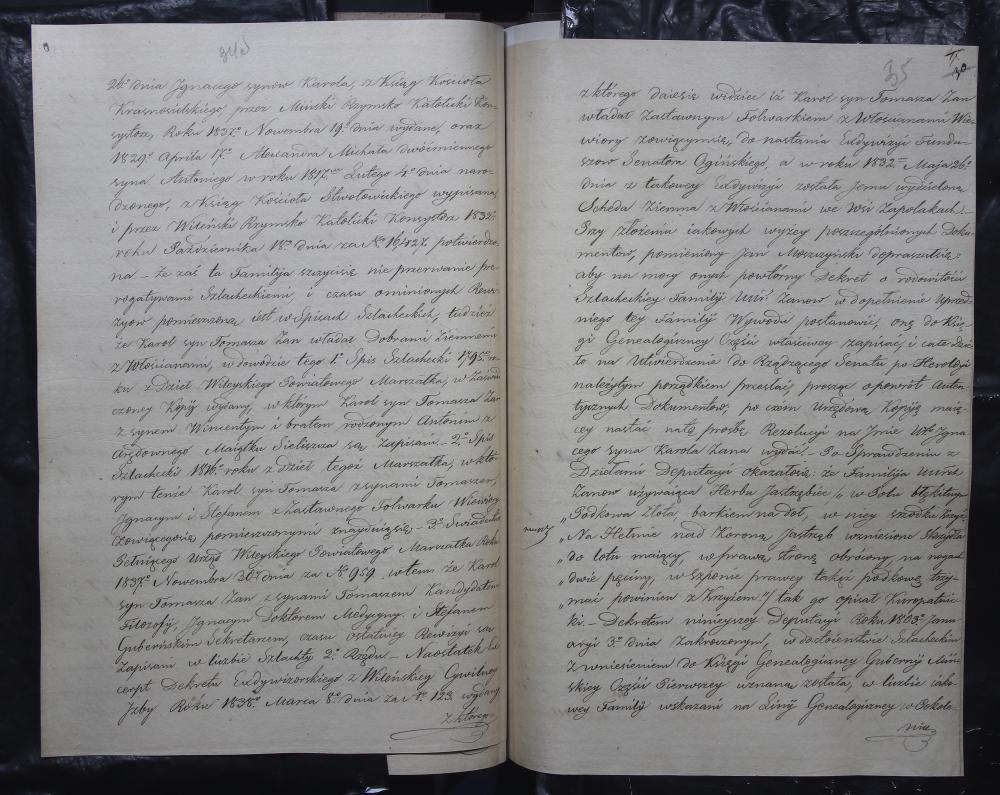 34 d
26º dnia Ignacego synów Karola, z Ksiąg Kościoła
Krasnosielskiego, przez Miński Rzymsko Katolicki Kon-
systorz, Roku 1837º Nowembra 19º dnia wydane, oraz
1829º Aprila 17º Alexandra Michała dwóimiennego
syna Antoniego w roku 1817ᵐ Lutego 4º dnia naro-
dzonego, z Ksiąg Kościoła Słwołowickiego wypisana
i przez Wileński Rzymsko Katolicki Konsystorz 1832º
roku Października 18º dnia za Nº 16427 potwierdzo-
na – że zaś ta Familija szczycisię nie przerwanie pre-
rogatywami Szlacheckiemi, i czasu ominionych Rewi-
zyow pomieszczoną iest w Spisach Szlacheckich, tudzież
że Karol syn Tomasza Zan władał Dobrami Ziemnemi
z Włościanami, w dowodzie tego 1º Spis Szlachecki 1795º ro-
ku z Dzieł Wileyskiego Powiatowego Marszałka, w Zaświad-
czoney Kopij wydany, w którym Karol syn Tomasza Zan
z synem Wincentym i bratem rodzonym Antonim z
Arędownego Maiątku Sieliszcza są Zapisani – 2º Spis
Szlachecki 1816º roku z dzieł tegoż Marszałka, w któ-
rym tenże Karol syn Tomasza z synami Tomaszem,
Ignacym i Stefanem z Zastawnego Folwarku Wiewiory
Zowiącegosię pomieszczonymi znayduiąsię – 3º Świadectwo
Pełniącego Urząd Wileyskiego Powiatowego Marszałka Roku
1837º Nowembra 30º dnia za Nº 959 w tem że Karol
syn Tomasza Zan z synami Tomaszem Kandydatem
Filozofij, Ignacym Doktorem Medycyny i Stefanem
Guberńskim Sekretarzem, czasu Ostatniey Rewizyi są
Zapisani w liczbie Szlachty 2º Rzędu – Naostatek Ex-
cerpt Dekretu Exdywizorskiego z Wileńskiey Cywilney
Izby Roku 1838º Marca 8º dnia za Nº 123 wydany
z którego
35
z którego daiesię widzieć iż Karol syn Tomasza Zan
władał Zastawnym Folwarkiem z Włościanami Wie-
wiory zowiącymsię, do nastania Exdywizyi Fundu-
szow Senatora Ogińskiego, a w roku 1832ᵐ Maja 26º
dnia z takowey Exdywizyi została Jemu wydzieloną
Scheda Ziemna z Włościanami we Wsi Zapolakach –
Przy złożeniu iakowych wyżey poszczególnionych Doku-
mentow, pomieniony Jan Moszczyński dopraszałsię:
aby na mocy onych powtórny Dekret o rodowitości
Szlacheckiey Familij Urº Zanow w dopełnienie Uprzed-
niego tey Familij Wywodu postanowić, oną do Księ-
gi Genealogiczney Części właściwey zapisać, i całe Dzie-
ło na Utwierdzenie do Rządzącego Senatu po Heroldyi
należytym porządkiem przesłać, prosząc o powrót Auten-
tycznych Dokumentow, po czém Urzędową Kopiję maią-
cey nastać natę prosbę Rezolucyi na Imie Urº Igna-
cego syna Karola Zana wydać. – Po Sprawdzeniu z
Dziełami Deputacyi okazałosię: że Familija Urº
Zanow używaiąca Herbu Jastrzębiec „w Polu błękitnym
„Podkowa Złota, barkiem na doł, w niey srodku Krzyż,
„Na Hełmie nad Koroną Jastrząb wzniesione Skrzydła
„do lotu maiący, w prawą stronę obrócony, na nogach
„dwie pęciny, w szponie prawey takąż podkowę trzy-
„mać powinien z Krzyżem” tak go opisał Kuropatnic-
ki. – Dekretem ninieyszey Deputacyi Roku 1803º Janu-
aryi 3º dnia Zakroczonym, w dostoieństwie Szlacheckim
z wniesieniem do Księgi Genealogiczney Gubernij Miń-
skiey Części Pierwszey uznana została, w liczbie iako-
wey Familij wskazani na Linij Genealogiczney w Pokole-
niu